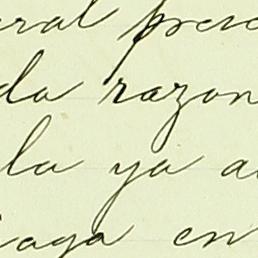 eral prese
da razon
la ya a
iaga en